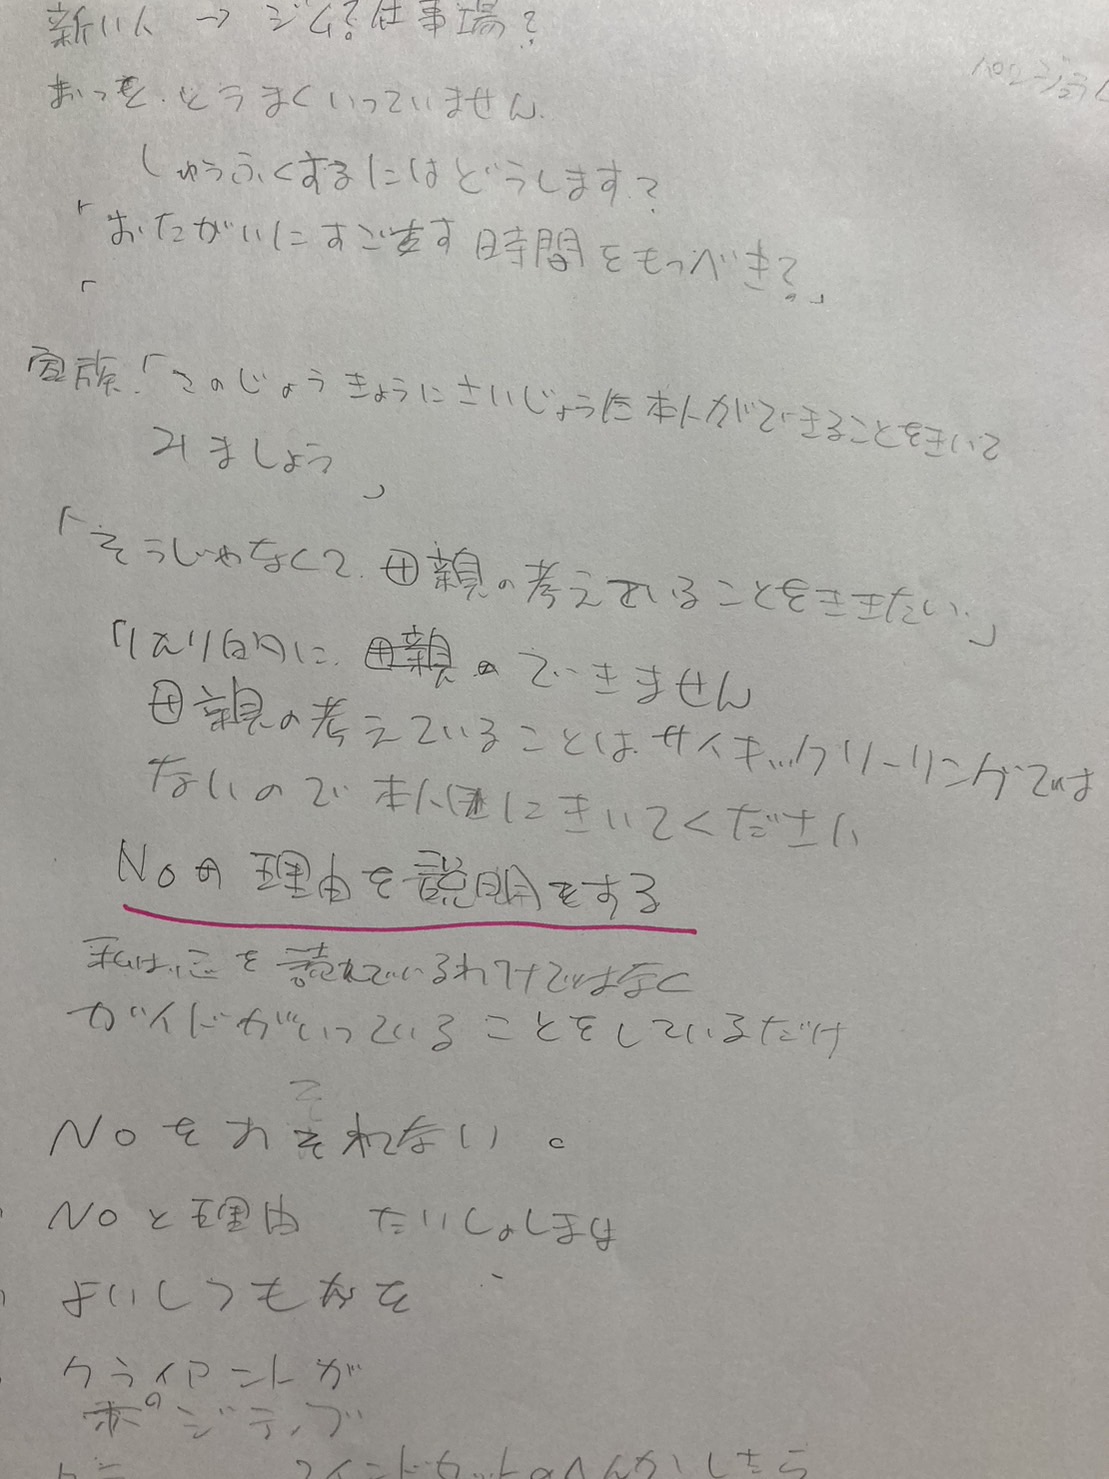 新い人 → ジム?仕事場?
おっと、とうまくいっていません。
しゅうふくするにはどうします?
「おたがいにすごす時間をもつべき?」
「
家族.「このじょうきょうにさいじょうに本人ができることをきいて
みましょう」
「そうじゃなくて、母親の考えていることをききたい。」
「りんり的に、できません
母親の考えていることはサイキックリーリングでは
ないので本人にきいてください
Noの理由を説明をする
私は心を読んでいるわけではなく
ガイドがいっていることをしているだけ
Noをおそれない。
Noと理由 たいしょしまは
よいしつもんを
クライアントが
ポジティブ
マインドセットのへんかしたら